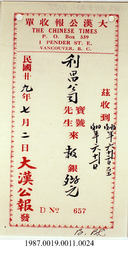 單收報公漢大
THE CHINESE TIMES
P. O. Box 539
1 PENDER ST. E.
VANCOUVER, B. C.
茲收到
利昌公司
寶號
先生
來報銀
民國廿九年七月二日
大漢公報發
D No 657
1987.0019.0011.0024